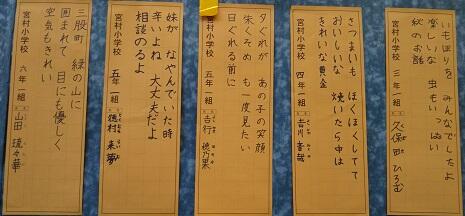 いもほりを みんなでしたよ
楽しいな 虫もいっぱい
秋のお話
宮村小学校 三年一組 久保田 ひろむ
さつまいも ほくほくしてて
おいしいな 焼いたら中は
きれいな黄金
宮村小学校 四年一組 吉川
夕ぐれが あの子の笑顔
朱くそめ も一度見たい
日ぐれる前に
宮村小学校 五年一組 吉行 穂乃果
妹が なやんでいた時
辛いよね 大丈夫だよ
相談のるよ
宮村小学校 五年一組 徳村 来夢
三股町 緑の山に
囲まれて 目にも優しく
空気もきれい
宮村小学校 六年一組 山田 琉々華